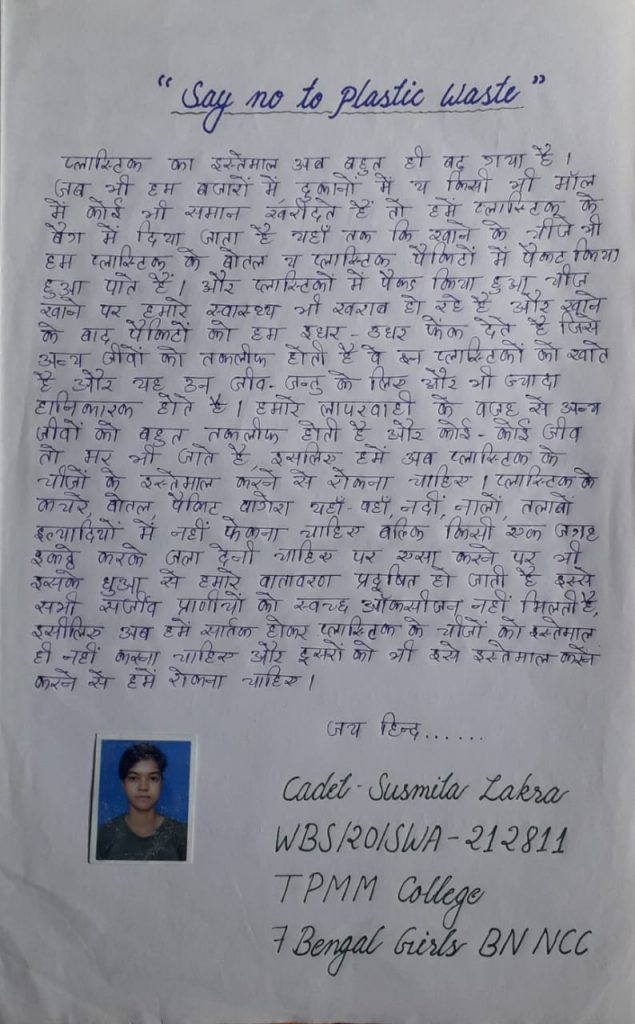 “Say no to Plastic Waste”
प्लास्टिक का इस्तेमाल अब बहुत ही बढ़ गया है।
जब भी हम बजारों में, दुकानों में य किसी भी मॉल
में कोई भी समान खरीदते हैं तो हमें प्लास्टिक के
बैग में दिया जाता है यहाँ तक कि खाने के चीजे भी
हम प्लास्टिक के बोतल य प्लास्टिक पैकिटों में पैकट किया
हुआ पाते हैं। और प्लास्टिकों में पैकट किया हुआ चीज
खाने पर हमारे स्वास्थ्य भी खराब हो रहे है और खाने
के बाद पैकिटों को हम इधर-उधर फेंक देते है जिसे
अन्य जीवों को तकलीफ होती है वे इन प्लास्टिकों को खाते
है और यह उन जीव-जन्तु के लिए और भी ज्यादा
हानिकारक होते है। हमारे लापरवाही के वजह से अन्य
जीवों को बहुत तकलीफ होती है और कोई-कोई जीव
तो मर भी जाते है, इसलिए हमें अब प्लास्टिक के
चीजों के इस्तेमाल करने से रोकना चाहिए। प्लास्टिक के
कचरे, बोतल, पैकिट वगेरा यहाँ-वहाँ, नदीं, नालों, तलाबों
इत्यादियों में नहीं फेकना चाहिए बल्कि किसी एक जगह
इकठ्ठे करके जला देनी चाहिए पर एसा करने पर भी
इसके धुआ से हमारे वातावरण प्रदूषित हो जाती है इस्से
सभी सजीव प्राणीयों को स्वच्छ ऑकसीजन नहीं मिलती है,
इसीलिए अब हमें सार्तक होकर प्लास्टिक के चीजों को इस्तेमाल
ही नहीं करना चाहिए और दुसरों को भी इसे इस्तेमाल करने
करने से हमें रोकना चाहिए।
जय हिन्द......
Cadet- Susmita Lakra
WBS/20/SWA-212811
TPMM College
7 Bengal Girls BN NCC